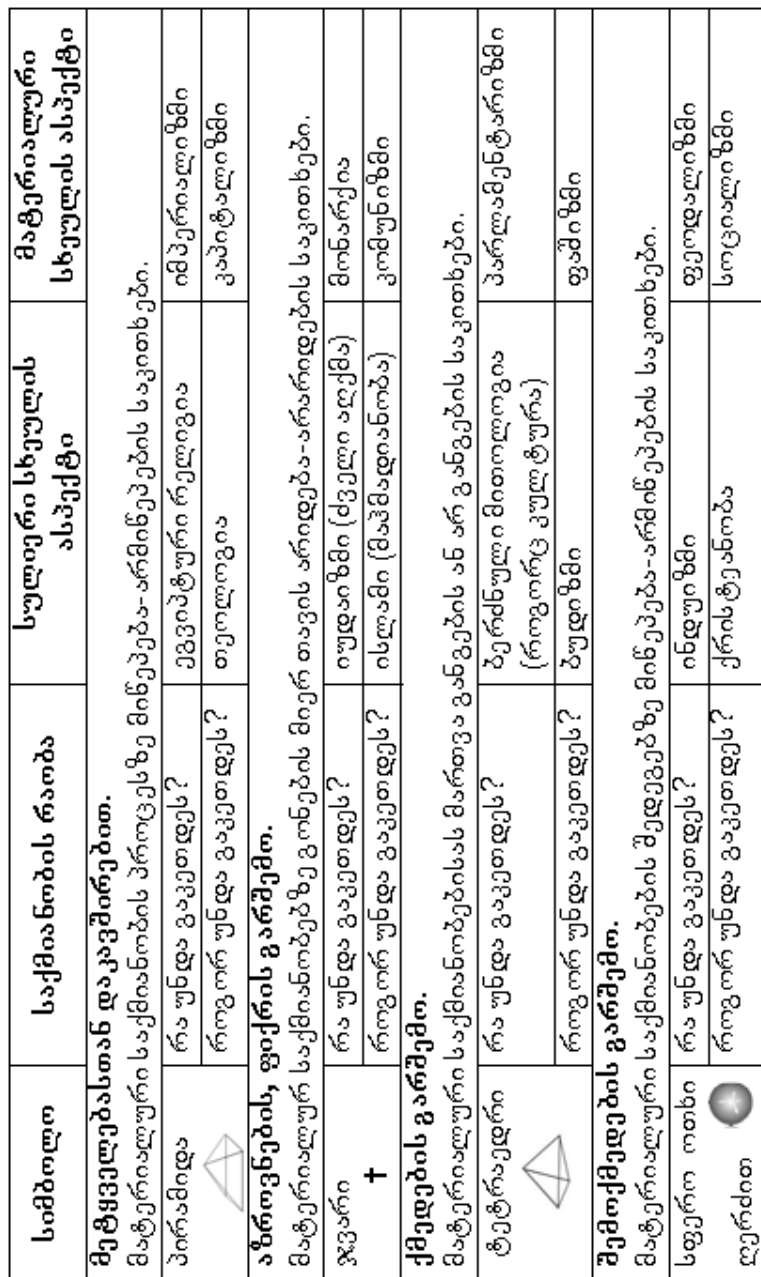 სიმბოლო
საქმიანობის რაობა
სულიერი სხეულის
ასპექტი
მატერიალური
სხეულის ასპექტი
მეტყველებასთან დაკავშირებით.
მატერიალური საქმიანობის პროცესზე მიწეპება-არმიწეპების საკითხები.
პირამიდა
რა უნდა გაკეთდეს?
ეგვიპტური რელიგია
იმპერიალიზმი
როგორ უნდა გაკეთდეს?
თეოლოგია
კაპიტალიზმი
აზროვნების, ფიქრის გარშემო.
მატერიალურ საქმიანობებზე გონების მიერ თავის არიდება-არარიდების საკითხები.
ჯვარი
რა უნდა გაკეთდეს?
იუდაიზმი (ძველი აღქმა)
მონარქია
როგორ უნდა გაკეთდეს?
ისლამი (მაჰმადიანობა)
კომუნიზმი
ქმედების გარშემო.
მატერიალური საქმიანობებისას მართვა განგების ან არ განგების საკითხები.
ტეტრაედრი
რა უნდა გაკეთდეს?
ბერძნული მითოლოგია
(როგორც კულტურა)
პარლამენტარიზმი
როგორ უნდა გაკეთდეს?
ბუდიზმი
ფაშიზმი
შემოქმედების გარშემო.
მატერიალური საქმიანობების შედეგებზე მიწეპება-არმიწეპების საკითხები.
სფერო ოთხი
ღერძით
რა უნდა გაკეთდეს?
ინდუიზმი
ფეოდალიზმი
როგორ უნდა გაკეთდეს?
ქრისტეანობა
სოციალიზმი